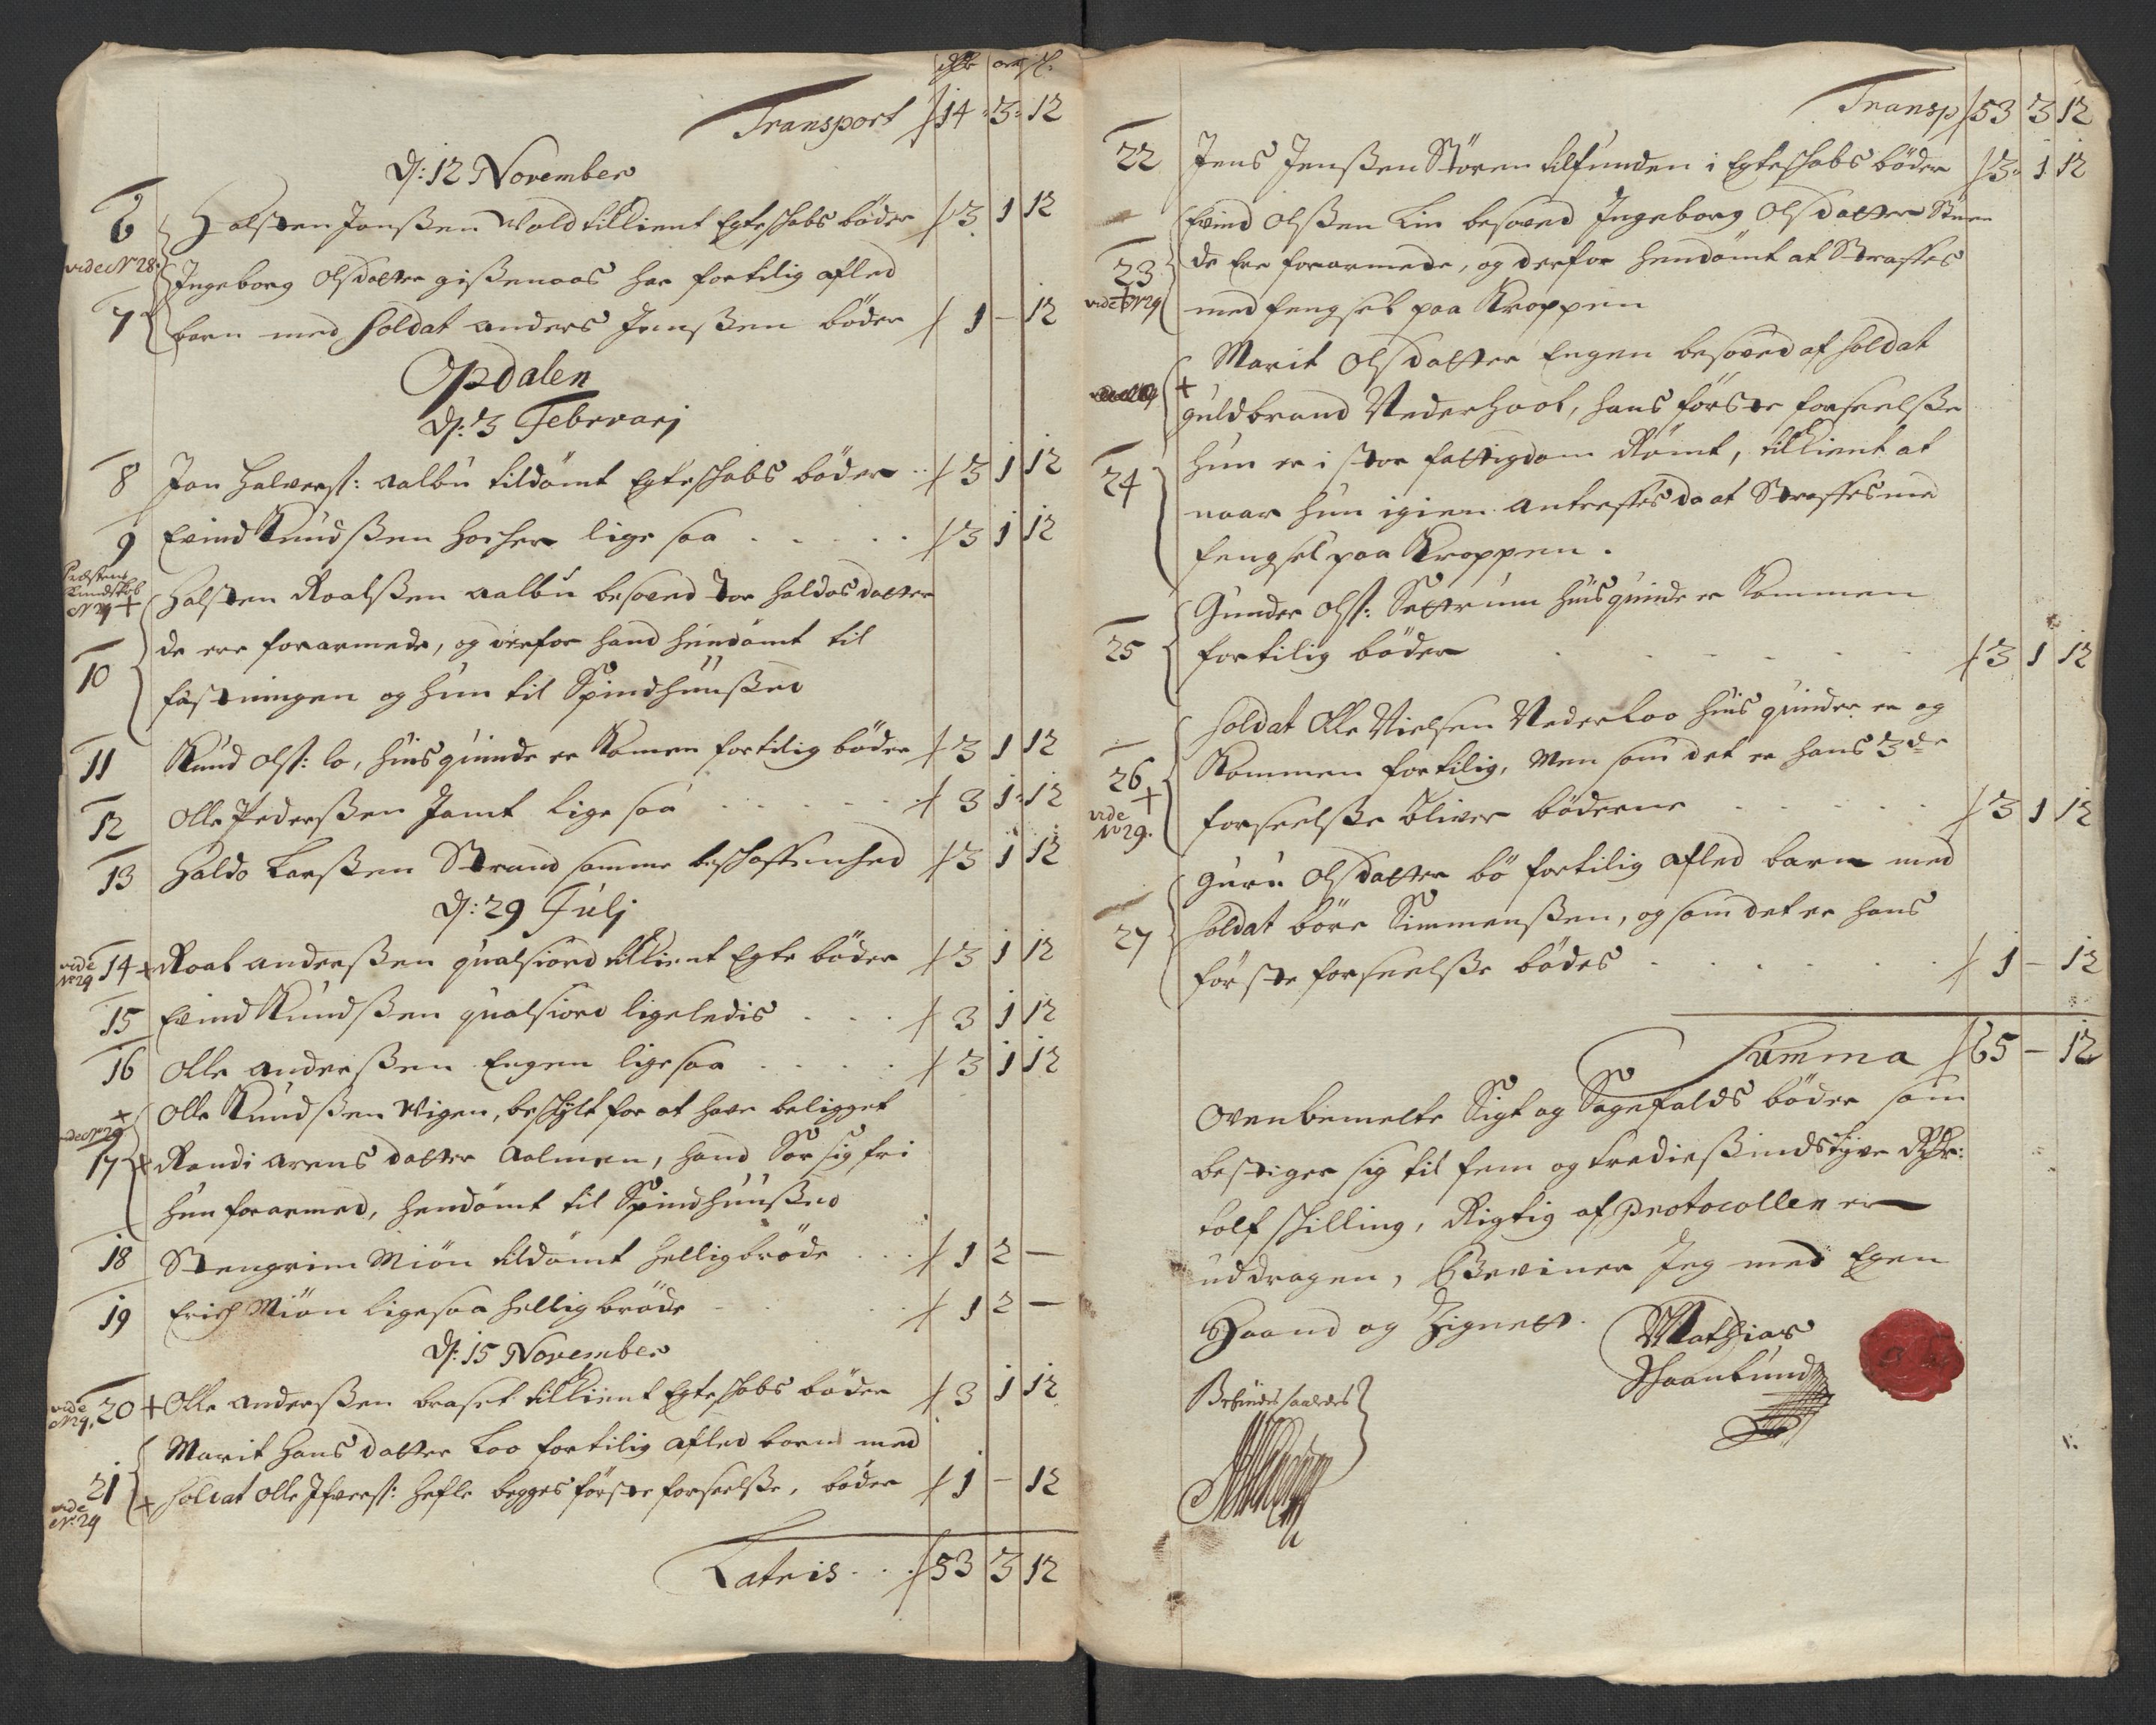 Rdr ort s:
Transport 14 3 12
D: 12 November
6 Halsten Jonssen Wold tilkient Egteskabs bøder 3 1 12
vide N 28. Ingeborg Olsdatter gissenaas har fortilig afled
7 barn med Soldat Anders Jenssen bøder 1 – 12
Opdalen
D: 3 Februarj
8 Jon Halvers: Aalbu tildømt Egteskabs bøder 3 1 12
9 Evind Knudssen Horher lige saa 3 1 12
Præstens Kundskb N 29 + Halsten Roalssen Aalbu besoved Tor Haldosdatter
10 de ere forarmede, og derfor hand hendømt til
fæstningen og hun til Spindhuusset
11 Knud Ols: lo, huus quinde er Komen fortilig bøder 3 1 12
12 Olle Pederssen Jamt lige saa 3 1 12
13 Haldo Larssen Strand samme beskaffenhed 3 1 12
D: 29 Julj
vide No 29 14 + Roal Anderssen qualsiord tilkient Egte bøder 3 1 12
15 Evind Knudssen qualsiord ligeledis 3 1 12
16 Olle Anderssen Engen lige saa 3 1 12
+ Olle Knudssen Wigen, beskylt for at have beligget
vide N 29 17 + Randi Arensdatter Aalmen, hand Sor sig fri
hun forarmed, hendømt til Spindhuusset
18 Stengrim Miøn tildømt helligbrøde 1 2 –
19 Erich Miøn ligesaa hellig brøde 1 2 –
D: 15 November
vide N 29. 20 + Olle Anderssen braset tilkient Egteskabs bøder 3 1 12
Marit Hansdatter Loo fortilig afled barn med
21 vide No: 29 + Soldat Olle Ifvers: Hefle begges første forseelsse, bøder 1 – 12
Lateris 53 3 12
Transp 53 3 12
22 Jens Jenssen Støren tilfunden i Egteskabs bøder 3 1 12
Evind Olssen Lin besoved Ingeborg Olsdatter Stuen
23 de Ere forarmede, og derfor hendømt at Straffes
vide N 29 + med fengsel paa Kroppen
Marit Olsdatter Engen besoved af Soldat
+ guldbrand Nederhool, hans første forseelsse
24 hun er i stor fattigdom Rømt, tilkient at
naar hun igien antreffes da at Straffes med
fengsel paa Kroppen.
Gunder Ols: Settrum huusquinde er Kommen
25 fortilig bøder 3 1 12
Soldat Olle Nielsen Nederloo huus quinde er og
26 + Kommen fortilig, Men som det er hans 3de
vide No 29. forseelsse bliver bøderne 3 1 12
Guru Olsdatter bø fortilig afled barn med
27 Soldat Børe Simmenssen, og som det er hans
første forseelsse bødes 1 – 12
Summa 65 – 12
Ovenbemelte Sigt og Sagefalds bøder som
bestiger sig til fem og trediessindstyve Rdr:
tolf skilling, Rigtig af Protocollen er
uddragen, Beviner Jeg med Egen
Haand og Zignett. Mathias
Skaanlund
Befindes saaledes